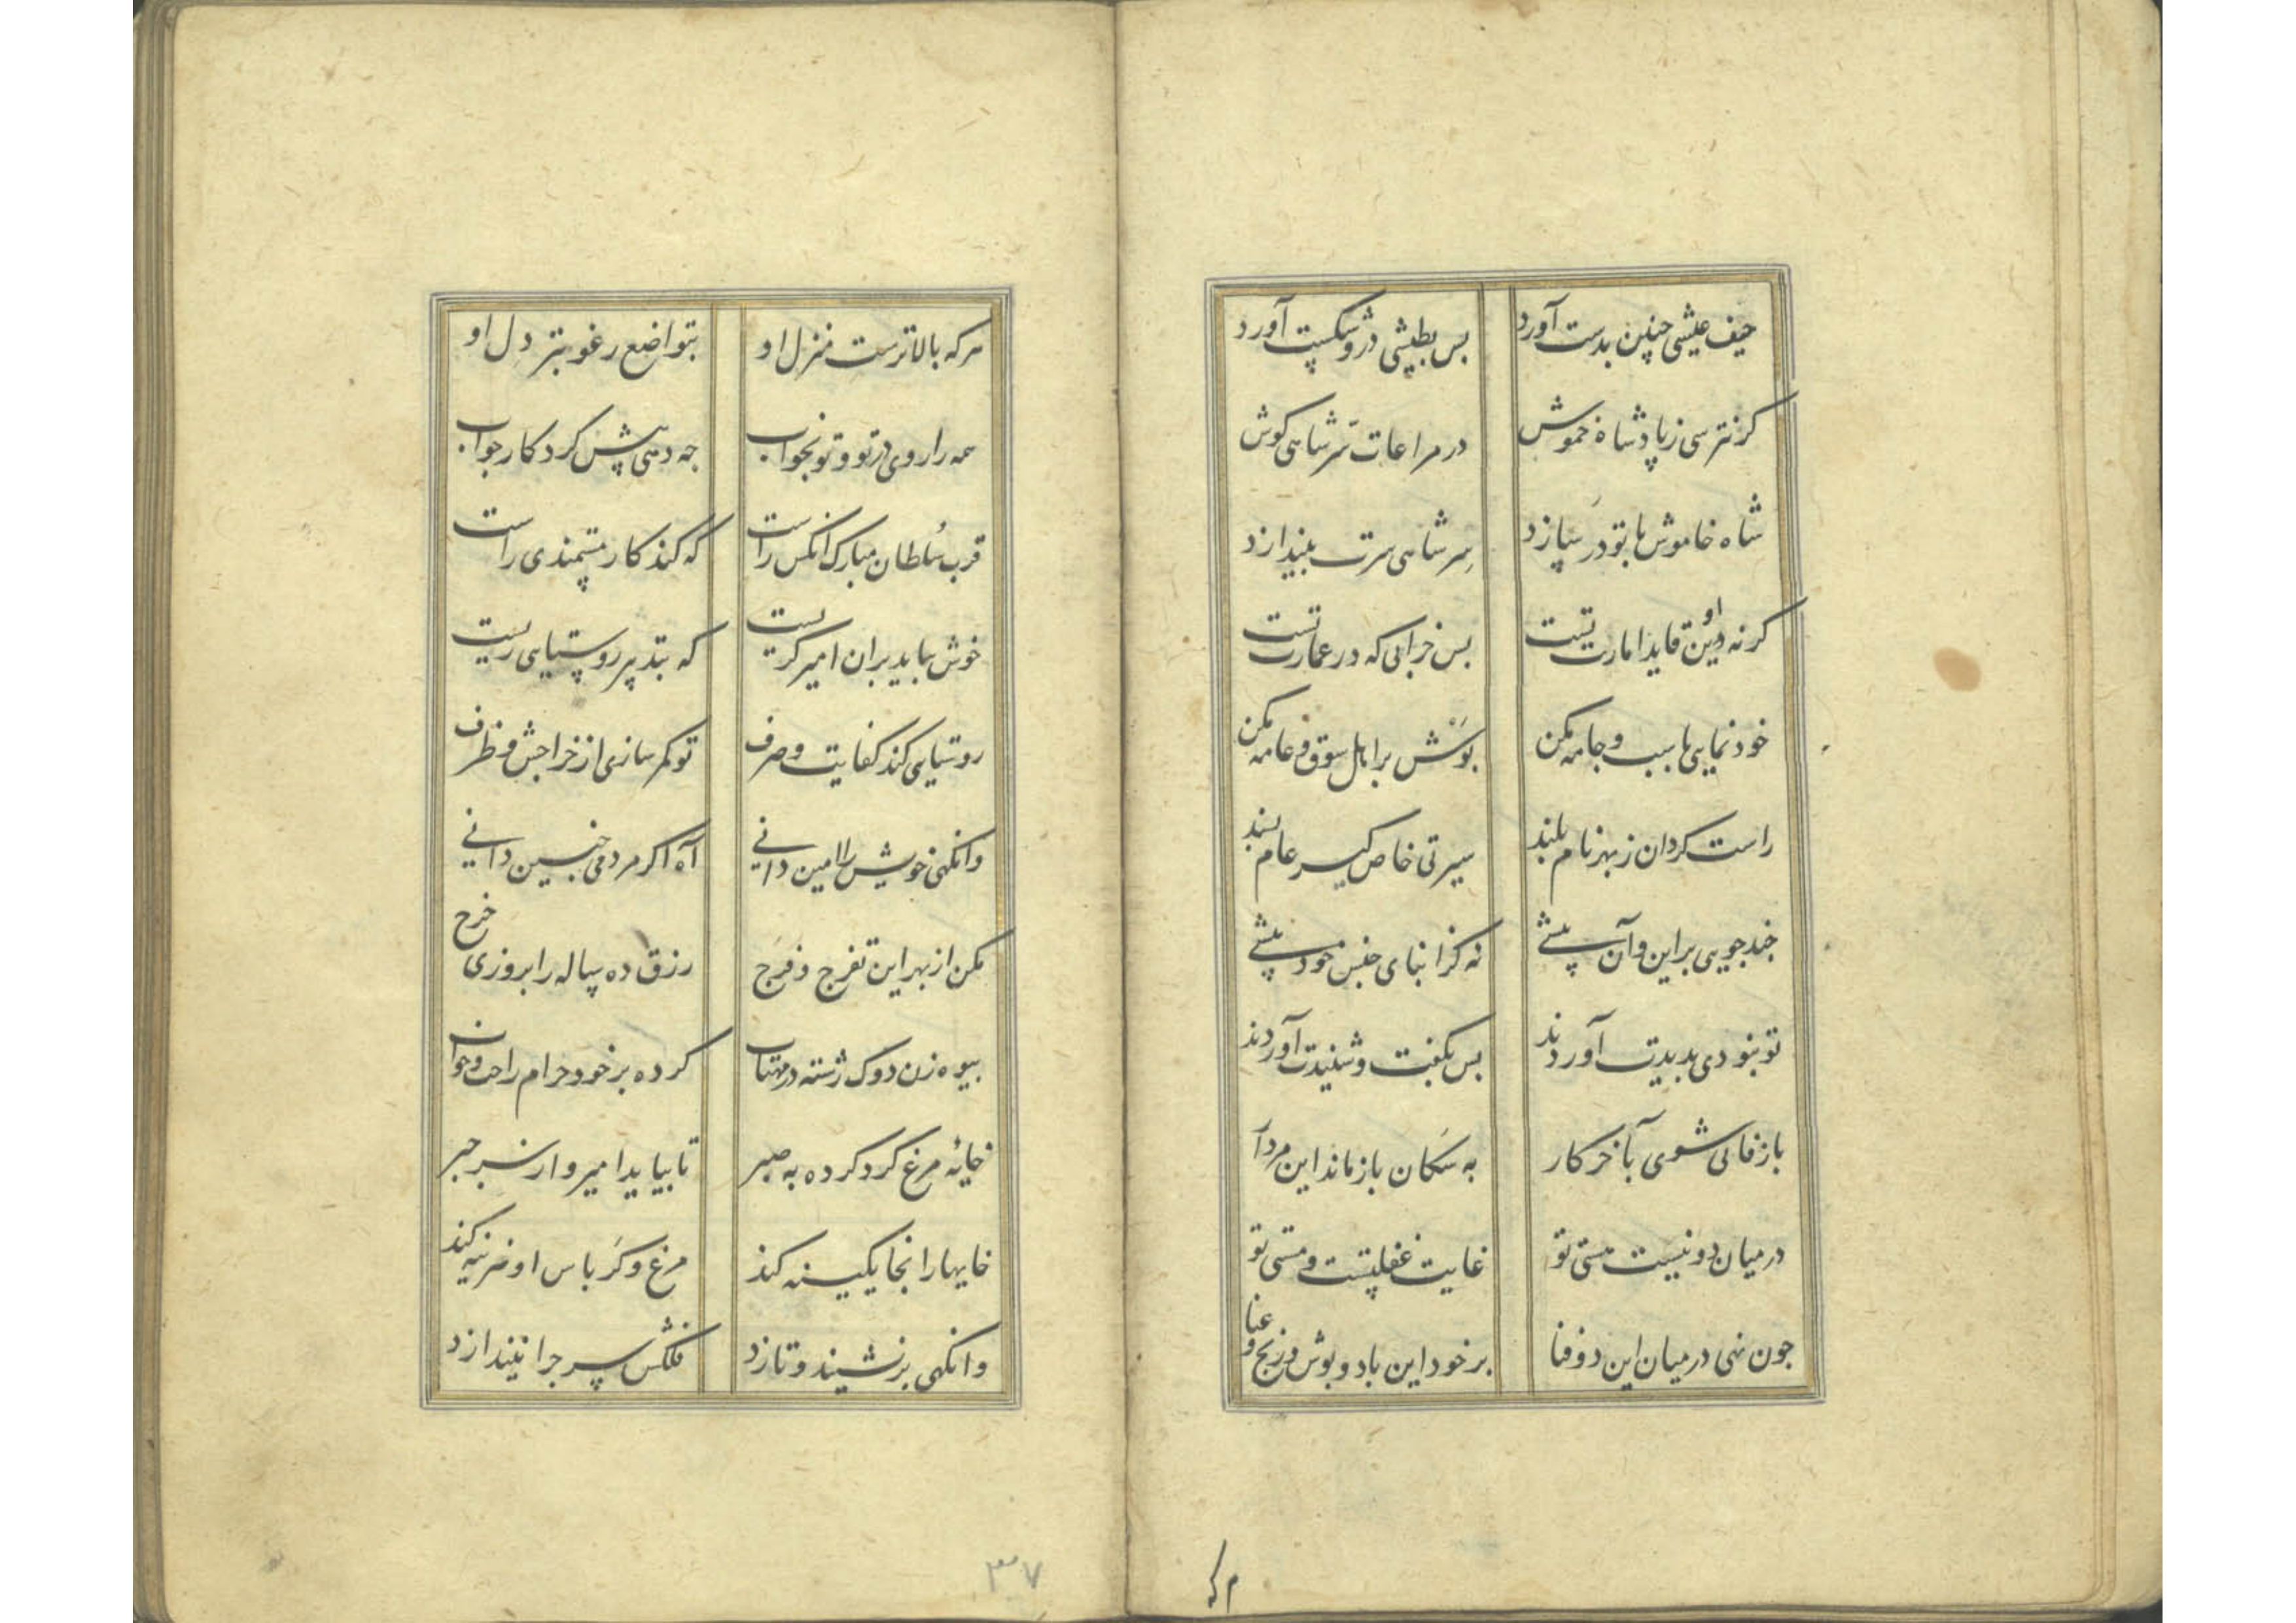 حیف عیشی چنین بدست آورد بس بطیشی درو شکست آورد
کر نترسی ز پادشاه خموش در مراعات سر شاهی کوش
شاه خاموش با تو در سازد سر شاهی سرت بیندازد
کرنه دین او قاید امارت تست بس خرابی که در عمارت تست
خودنمایی باسب و جامه مکن بوش بر اهل سوق و عامه مکن
راست کردان ز بهر نام بلند سیرتی خاص کیر عام پسند
چند جویی براین و آن پیشی نه کز ابنای جنس خود پیشی
تو نبودی پدیدت آوردند بس بگفت و شنیدت آوردند
باز فانی شوی بآخر کار به سکان بازماند این مردار
در میان دو نیست هستی تو غایت غفلتست و مستی تو
چون نهی در میان این دو فنا بر خود این باد و بوش و رنج و عنا
هرکه بالاترست منزل او بتواضع رغوبتر دل او
همه را روی در تو و تو بخواب چه دهی پیش کردکار جواب
قرب سلطان مبارک آنکس راست که کند کار مستمندی راست
خوش بباید بران امیر کریست که بتدبیر روستایی زیست
روستایی کند کفایت و صرف تو کمر سازی از خراجش و ظرف
وانکهی خویش را امین دانی آه اکر مردمی چنین دانی
مکن از بهر این تفرج و فرج رزق ده ساله را بروزی خرج
بیوه زن دوک رشته در مهتاب کرده بر خود حرام راحت و خواب
خایه مرغ کرد کرده به صبر تا بیاید امیر وار به جبر
خایها را بخایکینه کند مرغ و کرباس او هزینه کند
وانکهی برنشیند و تازد فلکش سر چرا نیندازد
۳۷